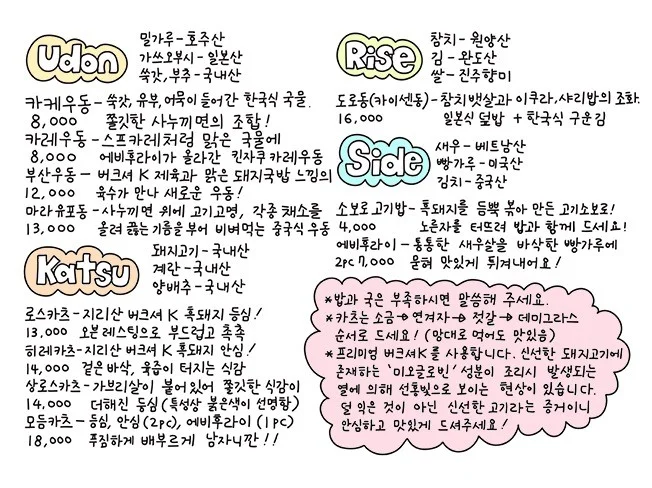 Udon
밀가루-호주산
가쓰오부시-일본산
쑥갓, 부추-국내산
카케우동-쑥갓, 유부, 어묵이 들어간 한국식 국물.
8,000 쫄깃한 사누끼면의 조합!
카레우동-스프카레처럼 맑은 국물에
8,000 에비후라이가 올라간 킨자쿠 카레우동
부산우동-버크셔 K 제육과 맑은 돼지국밥 느낌의
12,000 육수가 만나 새로운 우동!
마라유포동-사누끼면 위에 고기고명, 각종 채소를
13,000 올려 끓는 기름을 부어 비벼먹는 중국식 우동
Katsu
돼지고기-국내산
계란-국내산
양배추-국내산
로스카츠-지리산 버크셔 K 흑돼지 등심!
13,000 오븐 레스팅으로 부드럽고 촉촉
히레카츠-지리산 버크셔 K 흑돼지 안심!
14,000 겉은 바삭, 육즙이 터지는 식감
상로스카츠-가브리살이 붙어있어 쫄깃한 식감이
14,000 더해진 등심 (특성상 붉은색이 선명함)
모듬카츠-등심, 안심(2pc), 에비후라이(1pc)
18,000 푸짐하게 배부르게 남자니깐!!
Rise
참치-원양산
김-완도산
쌀-진주향미
도로동(카이센동)-참치뱃살과 이쿠라, 샤리밥의 조화.
16,000 일본식 덮밥 + 한국식 구운김
Side
새우-베트남산
빵가루-미국산
김치-중국산
소보로 고기밥-흑돼지를 듬뿍 볶아 만든 고기소보로!
4,000 노른자를 터뜨려 밥과 함께 드세요!
에비후라이-통통한 새우살을 바삭한 빵가루에
2pc 7,000 묻혀 맛있게 튀겨내어요!
*밥과 국은 부족하시면 말씀해 주세요.
*카츠는 소금→연겨자→젓갈→데미그라스
순서로 드세요! (맘대로 먹어도 맛있음)
*프리미엄 버크셔K를 사용합니다. 신선한 돼지고기에
존재하는 '미오글로빈' 성분이 조리시 발생되는
열에 의해 선홍빛으로 보이는 현상이 있습니다.
덜 익은 것이 아닌 신선한 고기라는 증거이니
안심하고 맛있게 드셔주세요!